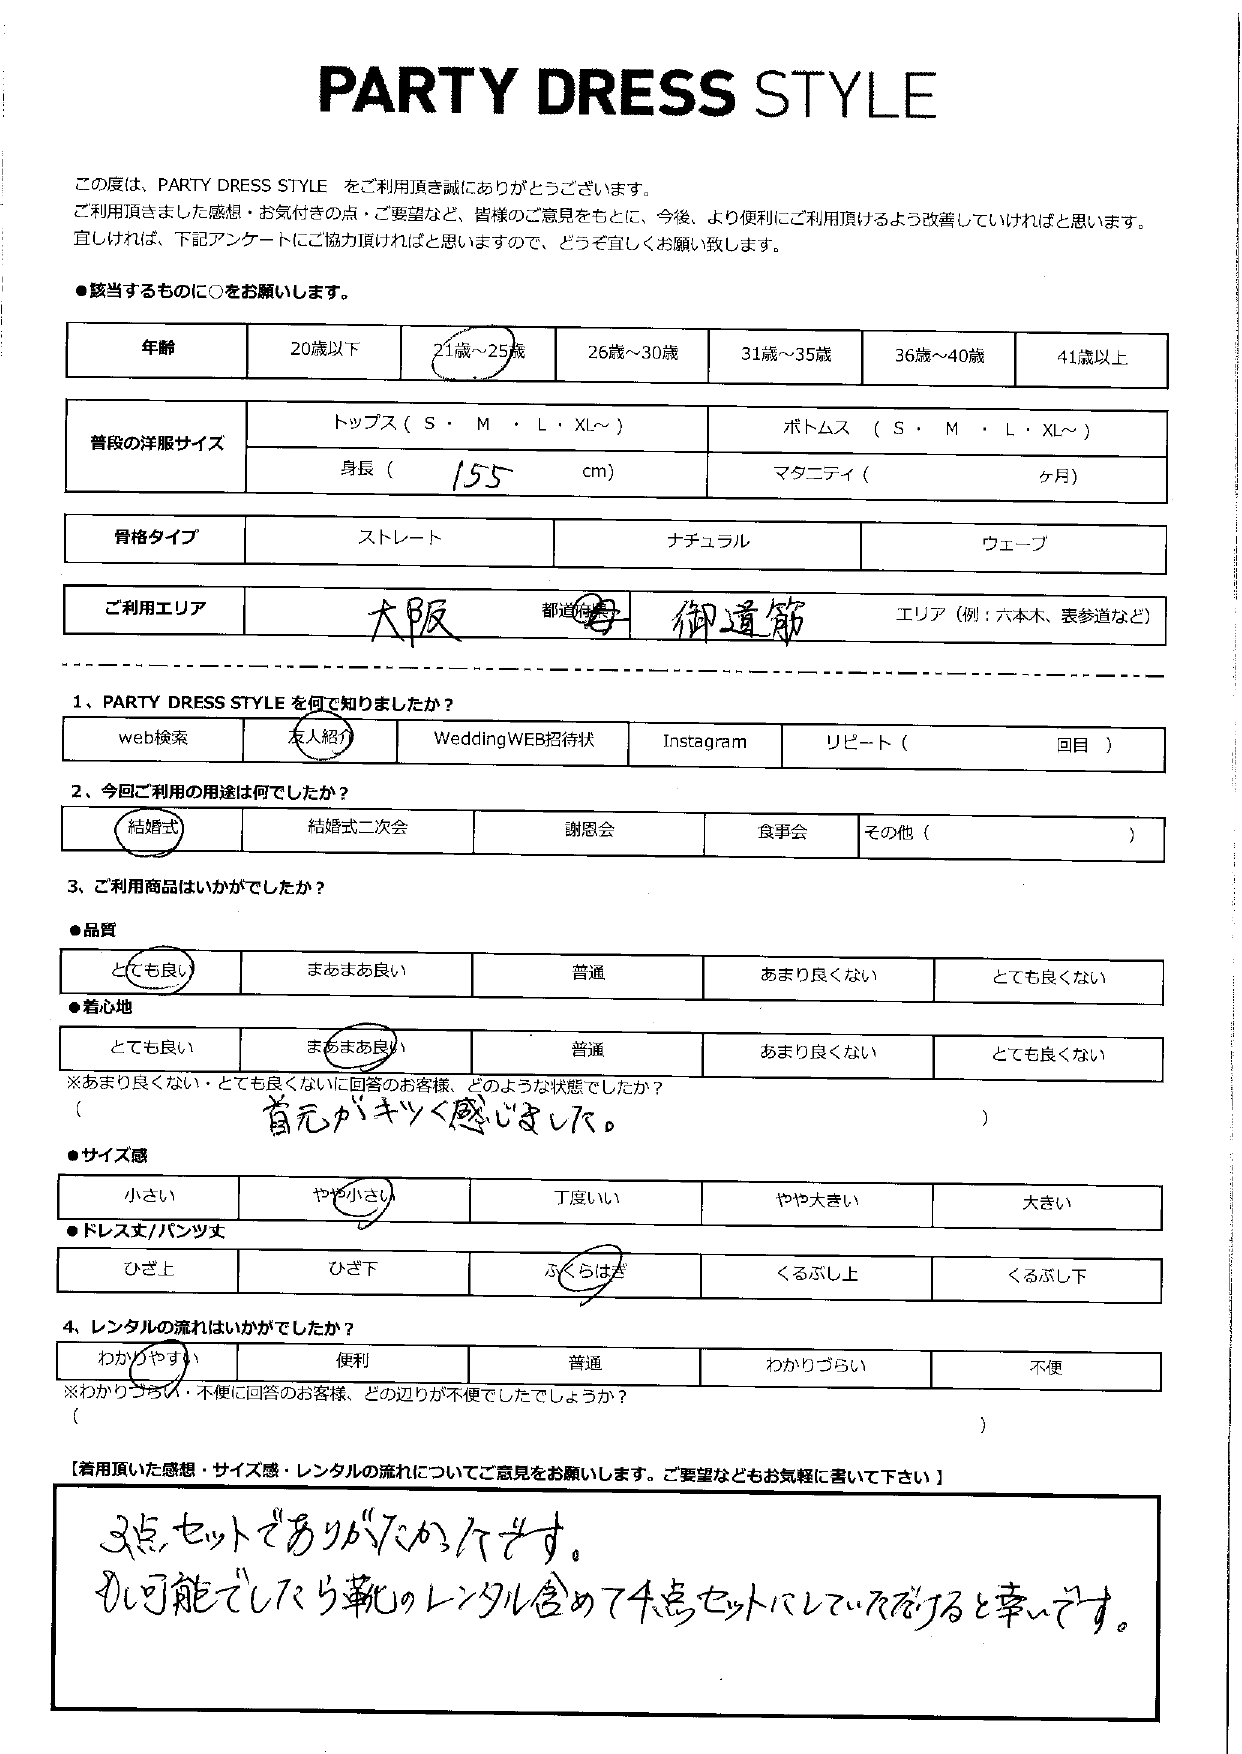 PARTY DRESS STYLE
この度は、PARTY DRESS STYLE をご利用頂き誠にありがとうございます。
ご利用頂きました感想・お気付きの点・ご要望など、皆様のご意見をもとに、今後、より便利にご利用頂けるよう改善していければと思います。
宜しければ、下記アンケートにご協力頂ければと思いますので、どうぞ宜しくお願い致します。
●該当するものに○をお願いします。
年齢 20歳以下 21歳～25歳 26歳～30歳 31歳～35歳 36歳～40歳 41歳以上
普段の洋服サイズ トップス ( S ・ M ・ L ・ XL～ ) ボトムス ( S ・ M ・ L ・ XL～ )
身長 ( 155 cm) マタニティ ( ヶ月)
骨格タイプ ストレート ナチュラル ウェーブ
ご利用エリア 大阪 都道府県 御道筋 エリア（例：六本木、表参道など）
1、PARTY DRESS STYLE を何で知りましたか？
web検索 友人紹介 WeddingWEB招待状 Instagram リピート ( 回目 )
2、今回ご利用の用途は何でしたか？
結婚式 結婚式二次会 謝恩会 食事会 その他 ( )
3、ご利用商品はいかがでしたか？
●品質
とても良い まあまあ良い 普通 あまり良くない とても良くない
●着心地
とても良い まあまあ良い 普通 あまり良くない とても良くない
※あまり良くない・とても良くないに回答のお客様、どのような状態でしたか？
( 首元がキツく感じました。 )
●サイズ感
小さい やや小さい 丁度いい やや大きい 大きい
●ドレス丈/パンツ丈
ひざ上 ひざ下 ふくらはぎ くるぶし上 くるぶし下
4、レンタルの流れはいかがでしたか？
わかりやすい 便利 普通 わかりづらい 不便
※わかりづらい・不便に回答のお客様、どの辺りが不便でしたでしょうか？
( )
【着用頂いた感想・サイズ感・レンタルの流れについてご意見をお願いします。ご要望などもお気軽に書いて下さい 】
3点セットでありがたかったです。
もし可能でしたら靴のレンタル含めて4点セットにしていただけると幸いです。